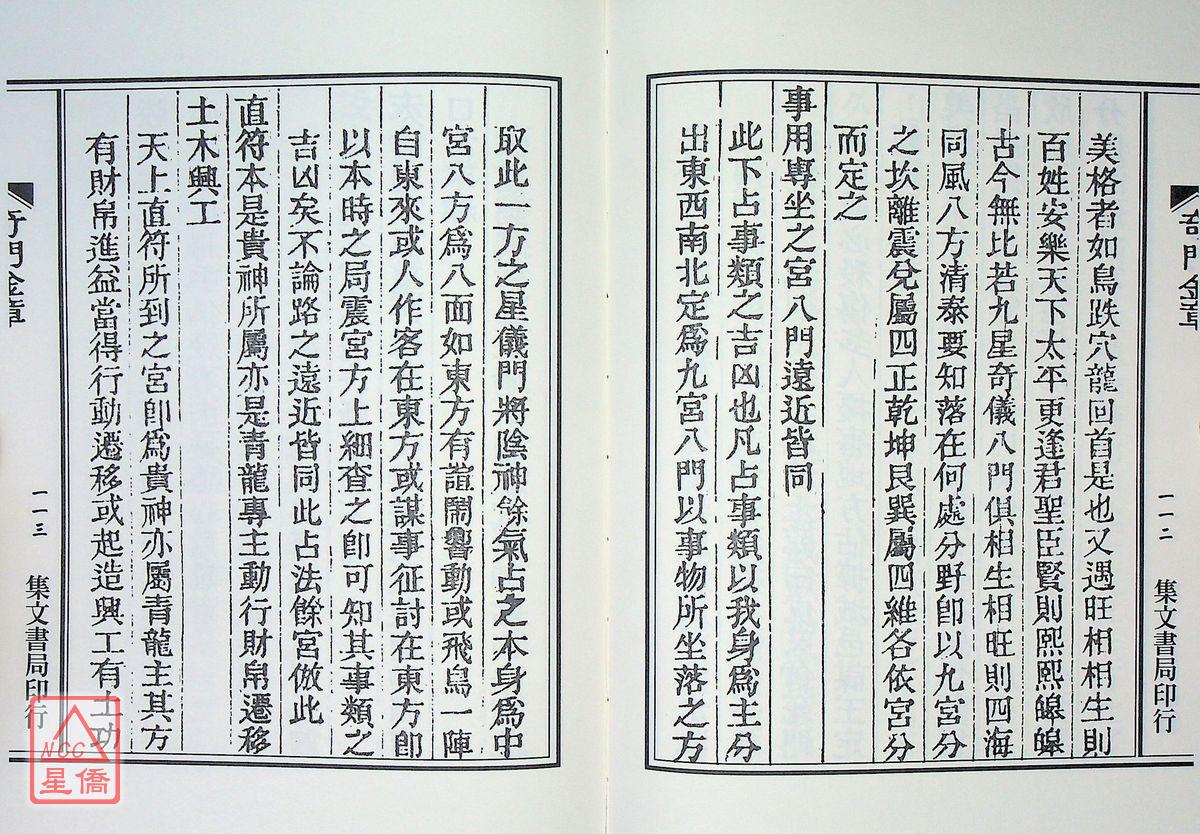 奇門金章
一一二
集文書局印行
美格者如鳥跌穴龍回首是也又遇旺相相生則
百姓安樂天下太平更逢君聖臣賢則熙熙皞皞
古今無比若九星奇儀八門俱相生相旺則四海
同風八方清泰要知落在何處分野卽以九宮分
之坎離震兌屬四正乾坤艮巽屬四維各依宮分
而定之
事用專坐之宮八門遠近皆同
此下占事類之吉凶也凡占事類以我身爲主分
出東西南北定爲九宮八門以事物所坐落之方
取此一方之星儀門將陰神餘氣占之本身爲中
宮八方爲八面如東方有諠鬧響動或飛鳥一陣
自東來或人作客在東方或謀事征討在東方卽
以本時之局震宮方上細查之卽可知其事類之
吉凶矣不論路之遠近皆同此占法餘宮倣此
直符本是貴神所屬亦是青龍專主動行財帛遷移
土木興工
天上直符所到之宮卽爲貴神亦屬青龍主其方
有財帛進益當得行動遷移或起造興工有土功
奇門金章
一一三
集文書局印行
NCC
星僑